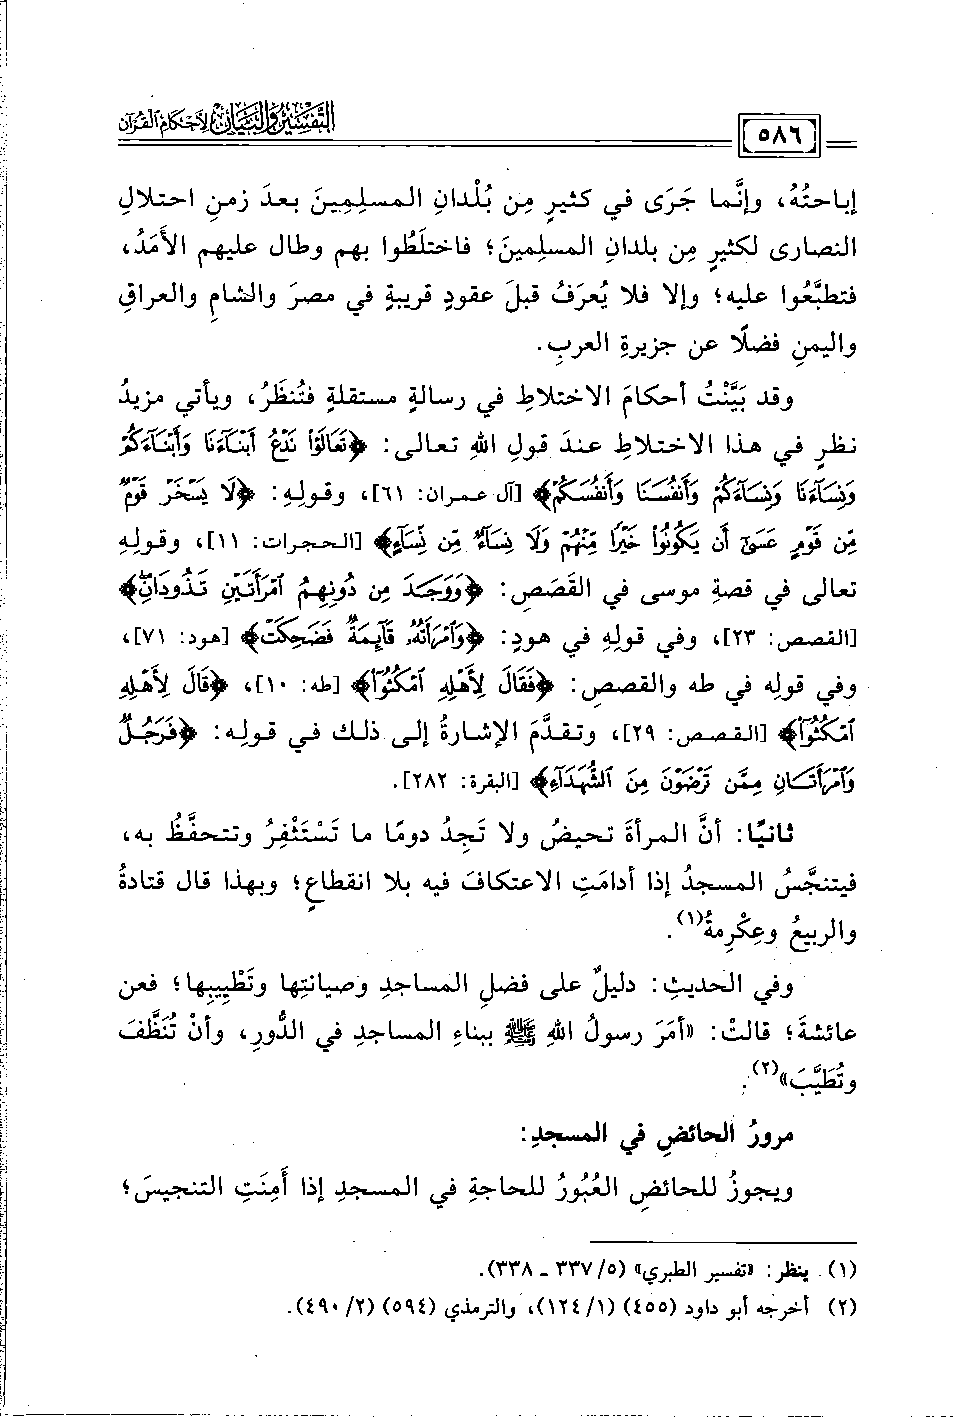 التَّفْسِيرُ وَالبَيَانُ لِأَحْكَامِ القُرْآنِ
٥٨٦
إباحتُهُ، وإنَّما جَرَى في كثيرٍ مِن بُلْدانِ المسلِمِينَ بعدَ زمنِ احتلالِ
النصارى لكثيرٍ مِن بلدانِ المسلِمينَ؛ فاختلَطُوا بهم وطال عليهم الأمَدُ،
فتطبَّعُوا عليه؛ وإلا فلا يُعرَفُ قبلَ عقودٍ قريبةٍ في مصرَ والشامِ والعراقِ
واليمنِ فضلًا عن جزيرةِ العربِ.
وقد بَيَّنْتُ أحكامَ الاختلاطِ في رسالةٍ مستقلةٍ فتُنظَرُ، ويأتي مزيدُ
نظرٍ في هذا الاختلاطِ عندَ قولِ اللهِ تعالى: ﴿تَعَالَوْا نَدْعُ أَبْنَآءَنَا وَأَبْنَآءَكُمْ
وَنِسَآءَنَا وَنِسَآءَكُمْ وَأَنفُسَنَا وَأَنفُسَكُمْ﴾ [آل عمران: ٦١]، وقولِهِ: ﴿لَا يَسْخَرْ قَوْمٌ
مِّن قَوْمٍ عَسَىٰٓ أَن يَكُونُوا۟ خَيْرًا مِّنْهُمْ وَلَا نِسَآءٌ مِّن نِّسَآءٍ﴾ [الحجرات: ١١]، وقولِهِ
تعالى في قصةِ موسى في القَصَصِ: ﴿وَوَجَدَ مِن دُونِهِمُ ٱمْرَأَتَيْنِ تَذُودَانِۖ﴾
[القصص: ٢٣]، وفي قولِهِ في هودٍ: ﴿وَٱمْرَأَتُهُۥ قَآئِمَةٌ فَضَحِكَتْ﴾ [هود: ٧١]،
وفي قولِه في طه والقصصِ: ﴿فَقَالَ لِأَهْلِهِ ٱمْكُثُوٓا۟﴾ [طه: ١٠]، ﴿قَالَ لِأَهْلِهِ
ٱمْكُثُوٓا۟﴾ [القصص: ٢٩]، وتقدَّم الإشارةُ إلى ذلك في قولِه: ﴿فَرَجُلٌ
وَٱمْرَأَتَانِ مِمَّن تَرْضَوْنَ مِنَ ٱلشُّهَدَآءِ﴾ [البقرة: ٢٨٢].
ثانيًا: أنَّ المرأةَ تحيضُ ولا تَجِدُ دومًا ما تَسْتَثْفِرُ وتتحفَّظُ به،
فيتنجَّسُ المسجدُ إذا أدامَتِ الاعتكافَ فيه بلا انقطاعٍ؛ وبهذا قال قتادةُ
والربيعُ وعِكْرِمةُ(١).
وفي الحديثِ: دليلٌ على فضلِ المساجدِ وصيانتِها وتَطْيِيبِها؛ فعن
عائشةَ؛ قالتْ: «أمَرَ رسولُ اللهِ ﷺ ببناءِ المساجدِ في الدُّورِ، وأنْ تُنَظَّفَ
وتُطَيَّبَ»(٢).
مرورُ الحائضِ في المسجدِ:
ويجوزُ للحائضِ العُبُورُ للحاجةِ في المسجدِ إذا أَمِنَتِ التنجيسَ؛
(١) ينظر: «تفسير الطبري» (٥/ ٣٣٧ ـ ٣٣٨).
(٢) أخرجه أبو داود (٤٥٥) (١/ ١٢٤)، والترمذي (٥٩٤) (٢/ ٤٩٠).